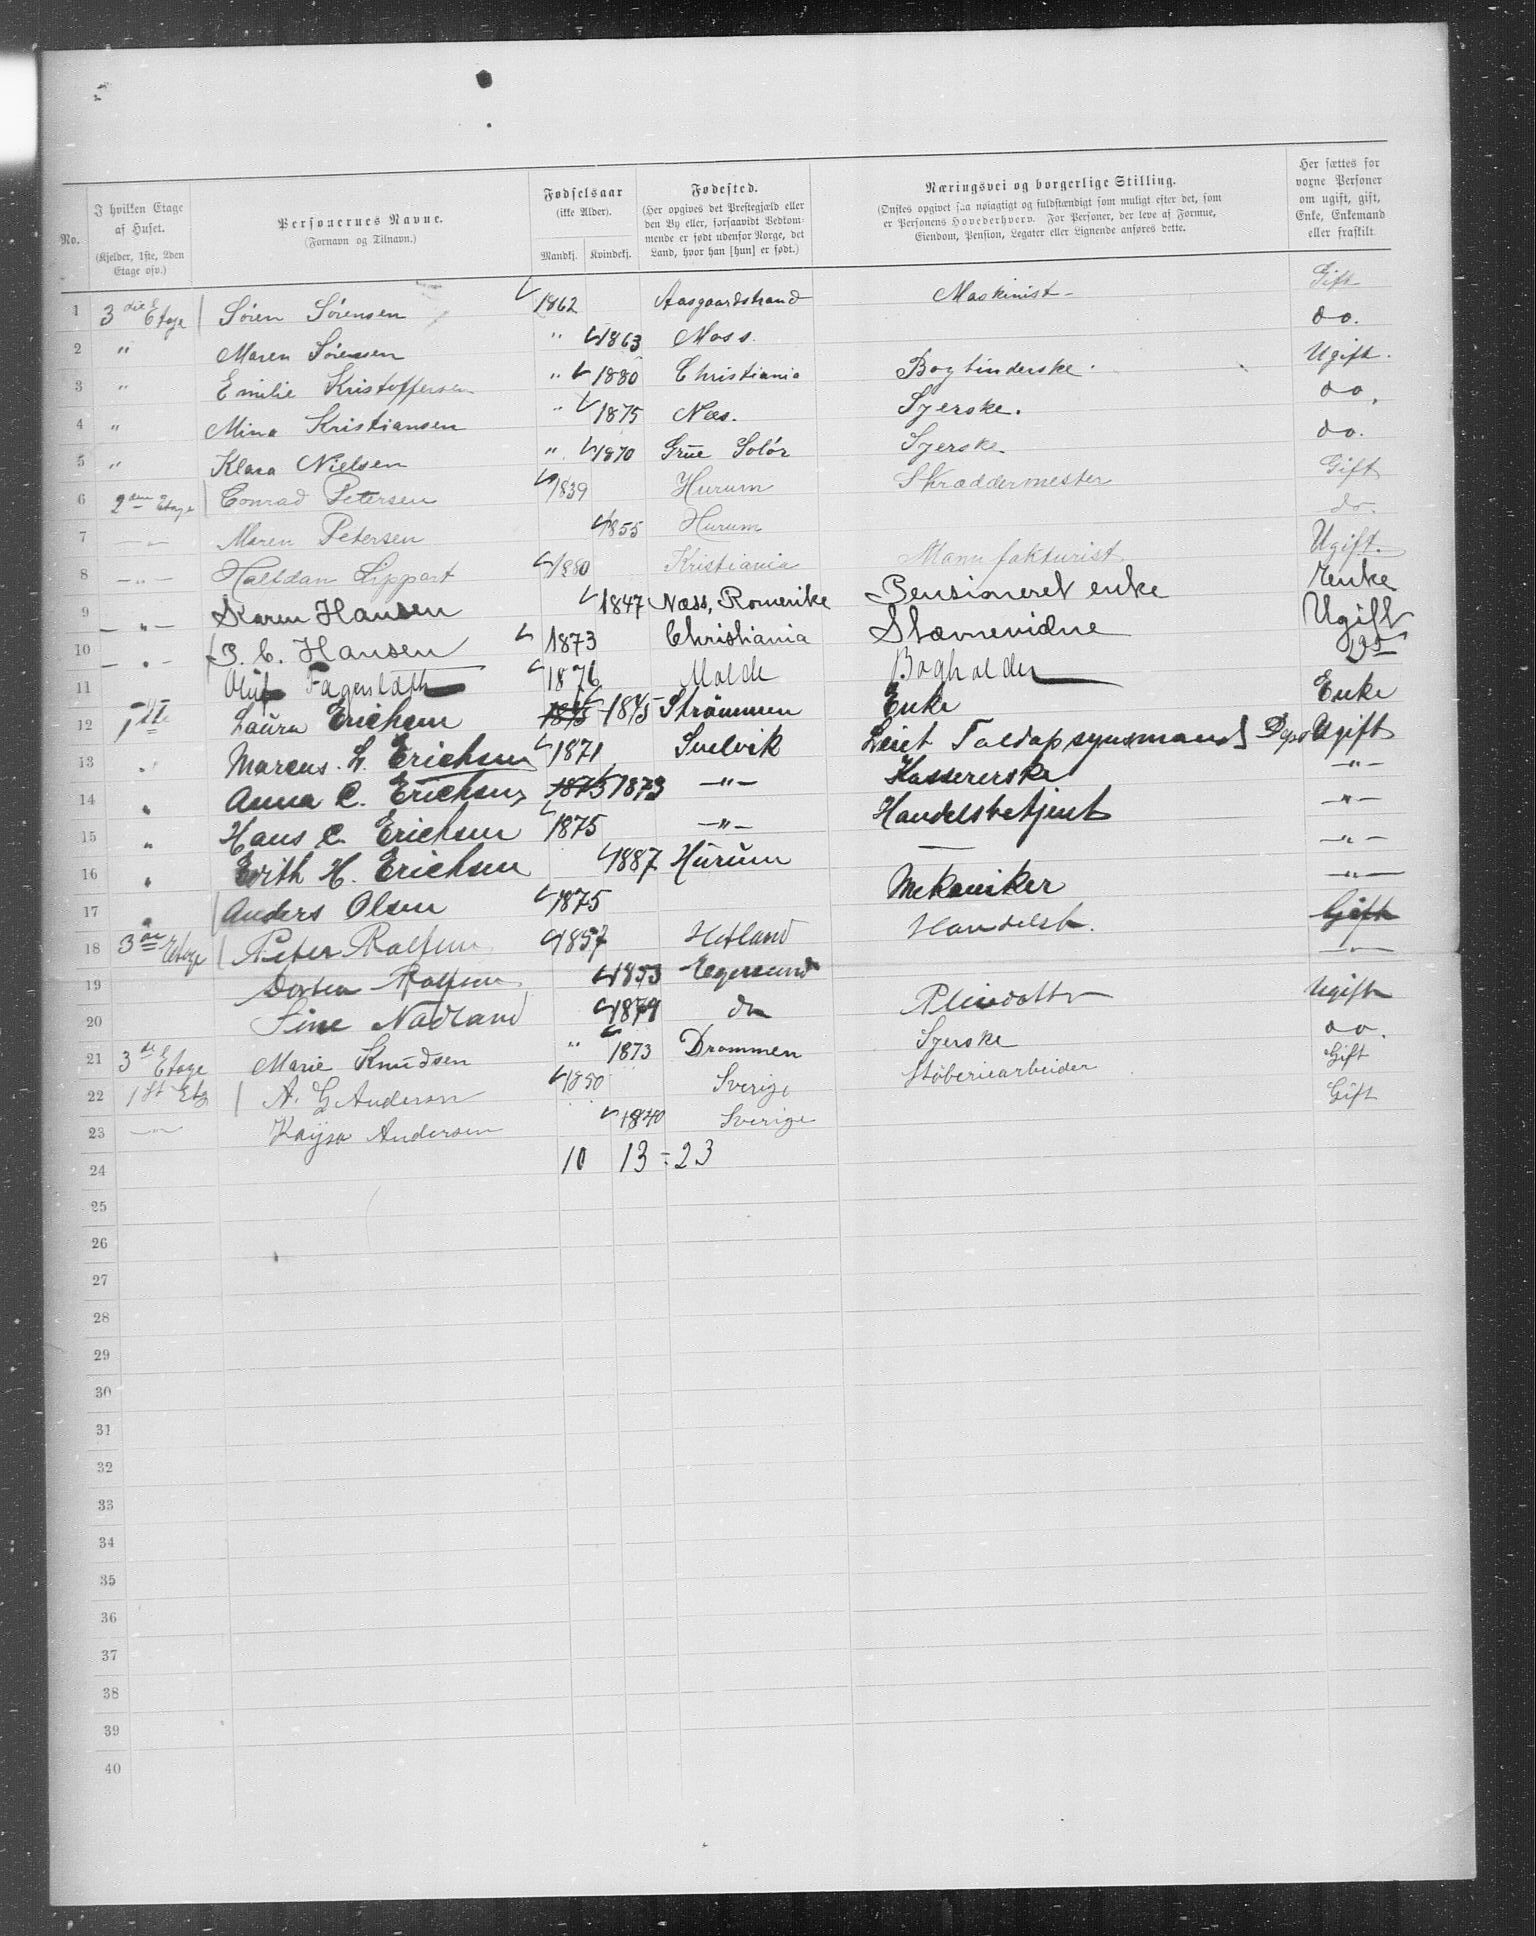 No.
I hvilken Etage af Huset.
(Kjelder, 1ste, 2den Etage osv.)
Personernes Navne.
(Fornavn og Tilnavn.)
Fødselsaar
(ikke Alder).
Mandkj. Kvindekj.
Fødested.
(Her opgives det Prestegjæld eller den By eller, forsaavidt Vedkommende er født udenfor Norge, det Land, hvor han [hun] er født.)
Næringsvei og borgerlige Stilling.
(Ønskes opgivet saa nøiagtigt og fuldstændigt som muligt efter det, som er Personens Hovederhverv. For Personer, der leve af Formue, Eiendom, Pension, Legater eller Lignende anføres dette.
Her sættes for voxne Personer om ugift, gift, Enke, Enkemand eller fraskilt
1 3die Etage Søren Sørensen 1862 Aasgaardstrand Maskinist - Gift
2 " Maren Sørensen " 1863 Moss. do.
3 " Emilie Kristoffersen " 1880 Christiania Bogbinderske. Ugift.
4 " Mina Kristiansen " 1875 Næs. Syerske. do.
5 " Klara Nielsen " 1870 Grue Solør Syerske do.
6 2den Etage Conrad Petersen 1839 Hurum Skræddermester Gift
7 — " — Maren Petersen 1855 Hurum do.
8 — " — Halfdan Lippert 1880 Kristiania Manufakturist Ugift.
9 — " — Karen Hansen 1847 Næss, Romerike Pensioneret enke enke
10 — " — P. C. Hansen 1873 Christiania Stævnevidne Ugift
11 Oluf 1876 Molde Bogholder
12 1ste Laura Erichsen 1845 1845 Strømmen Enke Enke
13 " Marcus. L. Erichsen 1871 Svelvik Ugift
14 " Anna C. Erichsen 1873 1873 — " — Kassererske — " —
15 " Hans C. Erichsen 1875 — " — Handelsbetjent — " —
16 " Edith H. Erichsen 1887 Hurum — — " —
17 " Anders Olsen 1875 Mekaniker — " —
18 3de Etage Peter Ralfsen 1857 Hetland Handelsb. Gift
19 Dortea Ralfsen 1853 Egersund — " —
20 Sine Nadland 1879 do Pleiedatter Ugift
21 3di Etage Marie Knudsen " 1873 Drammen Syerske do.
22 1st Etg A. G. Anderson 1850 Sverige Støberiearbeider Gift
23 — " — Kaysa Andersen 1840 Sverige Gift
24 10 13 = 23
25
26
27
28
29
30
31
32
33
34
35
36
37
38
39
40